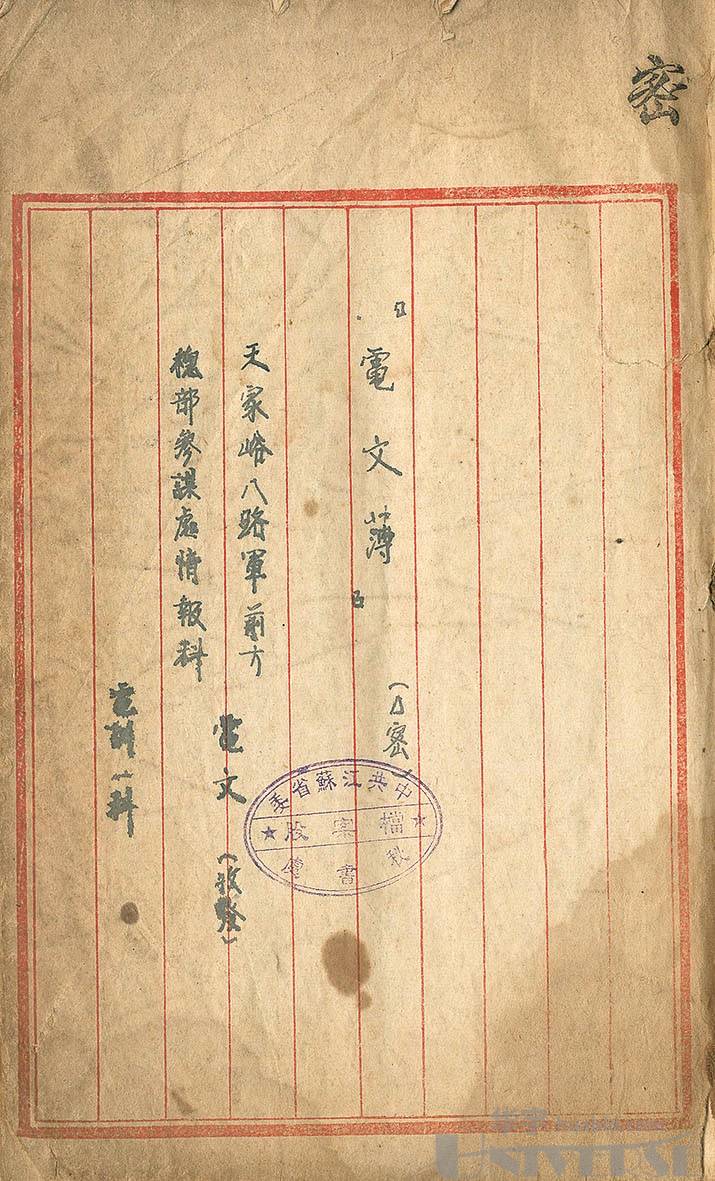 密
電文薄
(密)
天家峪八路軍前方
機部參謀處情報科
電文
(收發)
電訓一科
中共江蘇省委
檔案股
秘書處